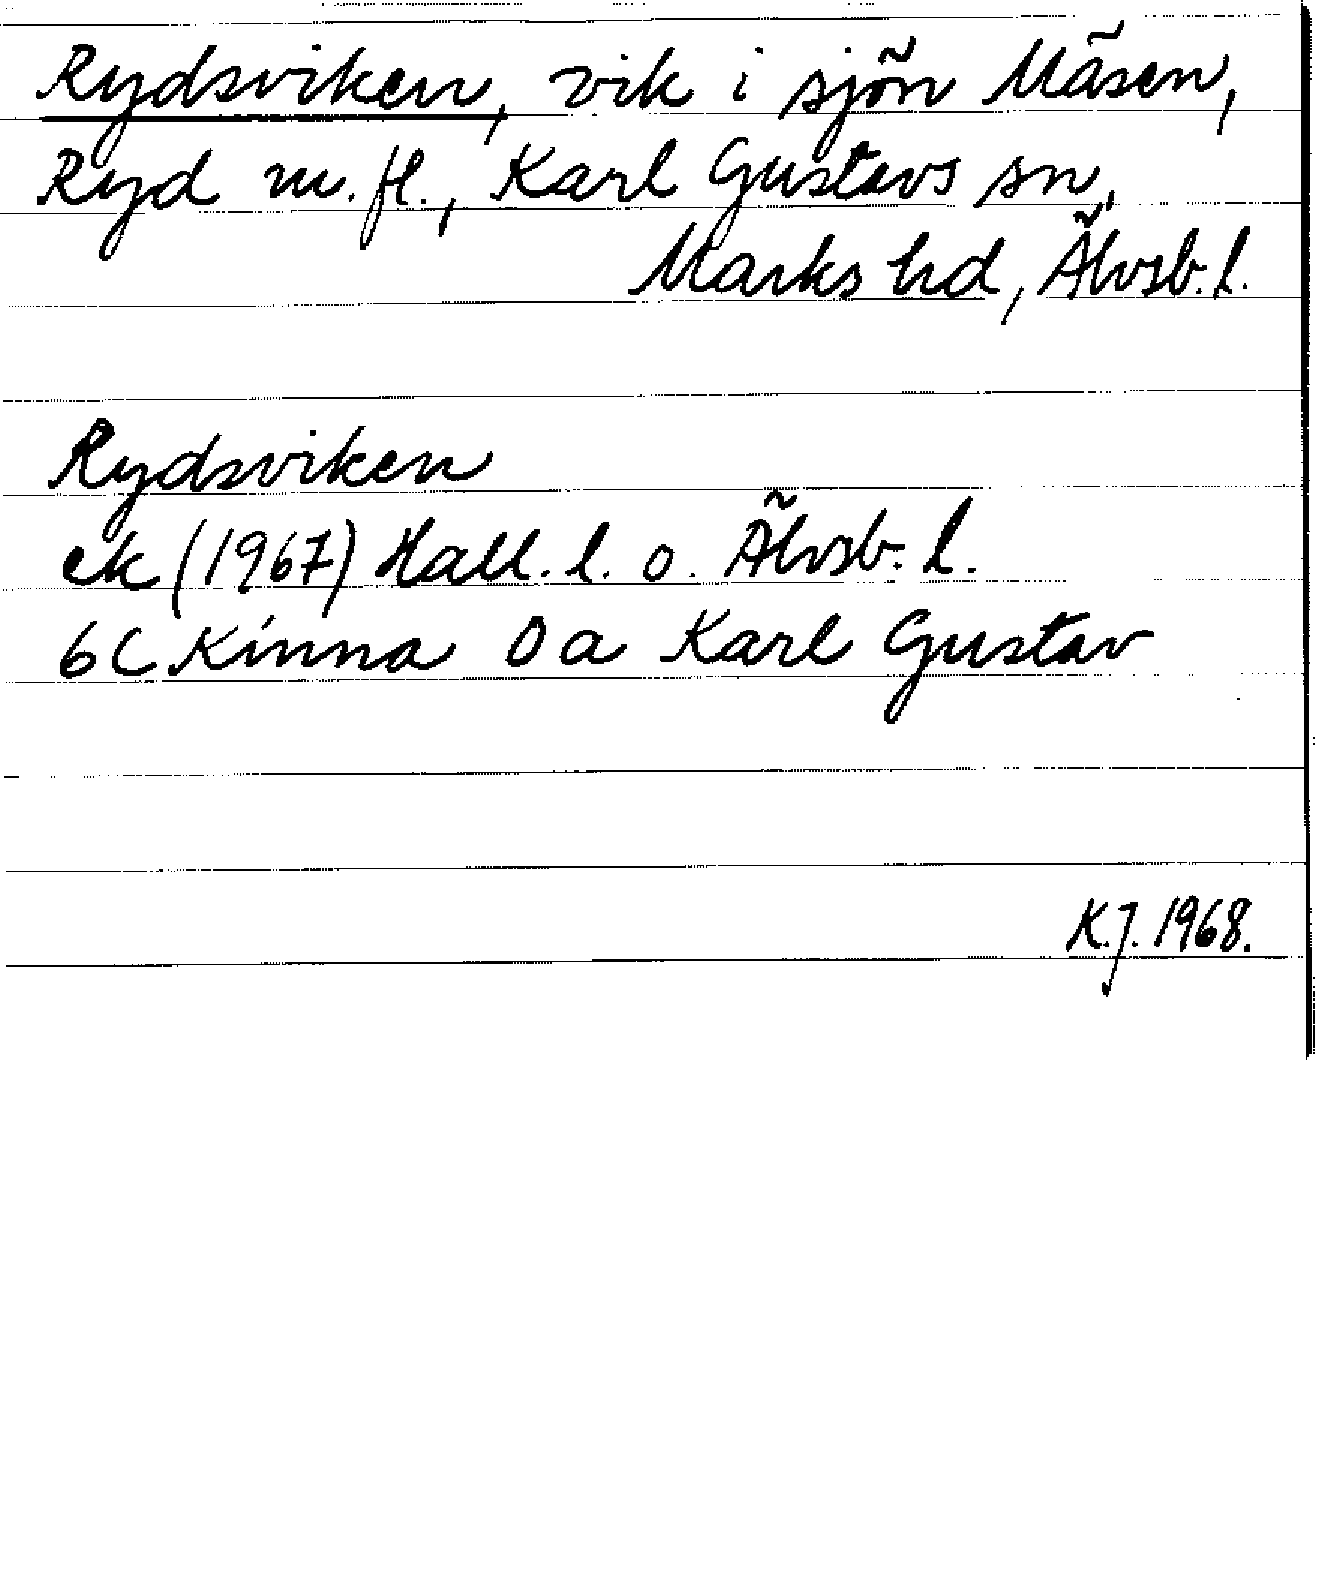 Rydsviken, vik i sjön Mäsen,
Ryd m.fl., Karl Gustavs sn,
Marks hd, Älvsb. l.
Rydsviken
ek (1967) Hall. l. o. Älvsb. l.
6C Kinna 0a Karl Gustav
K.J. 1968.